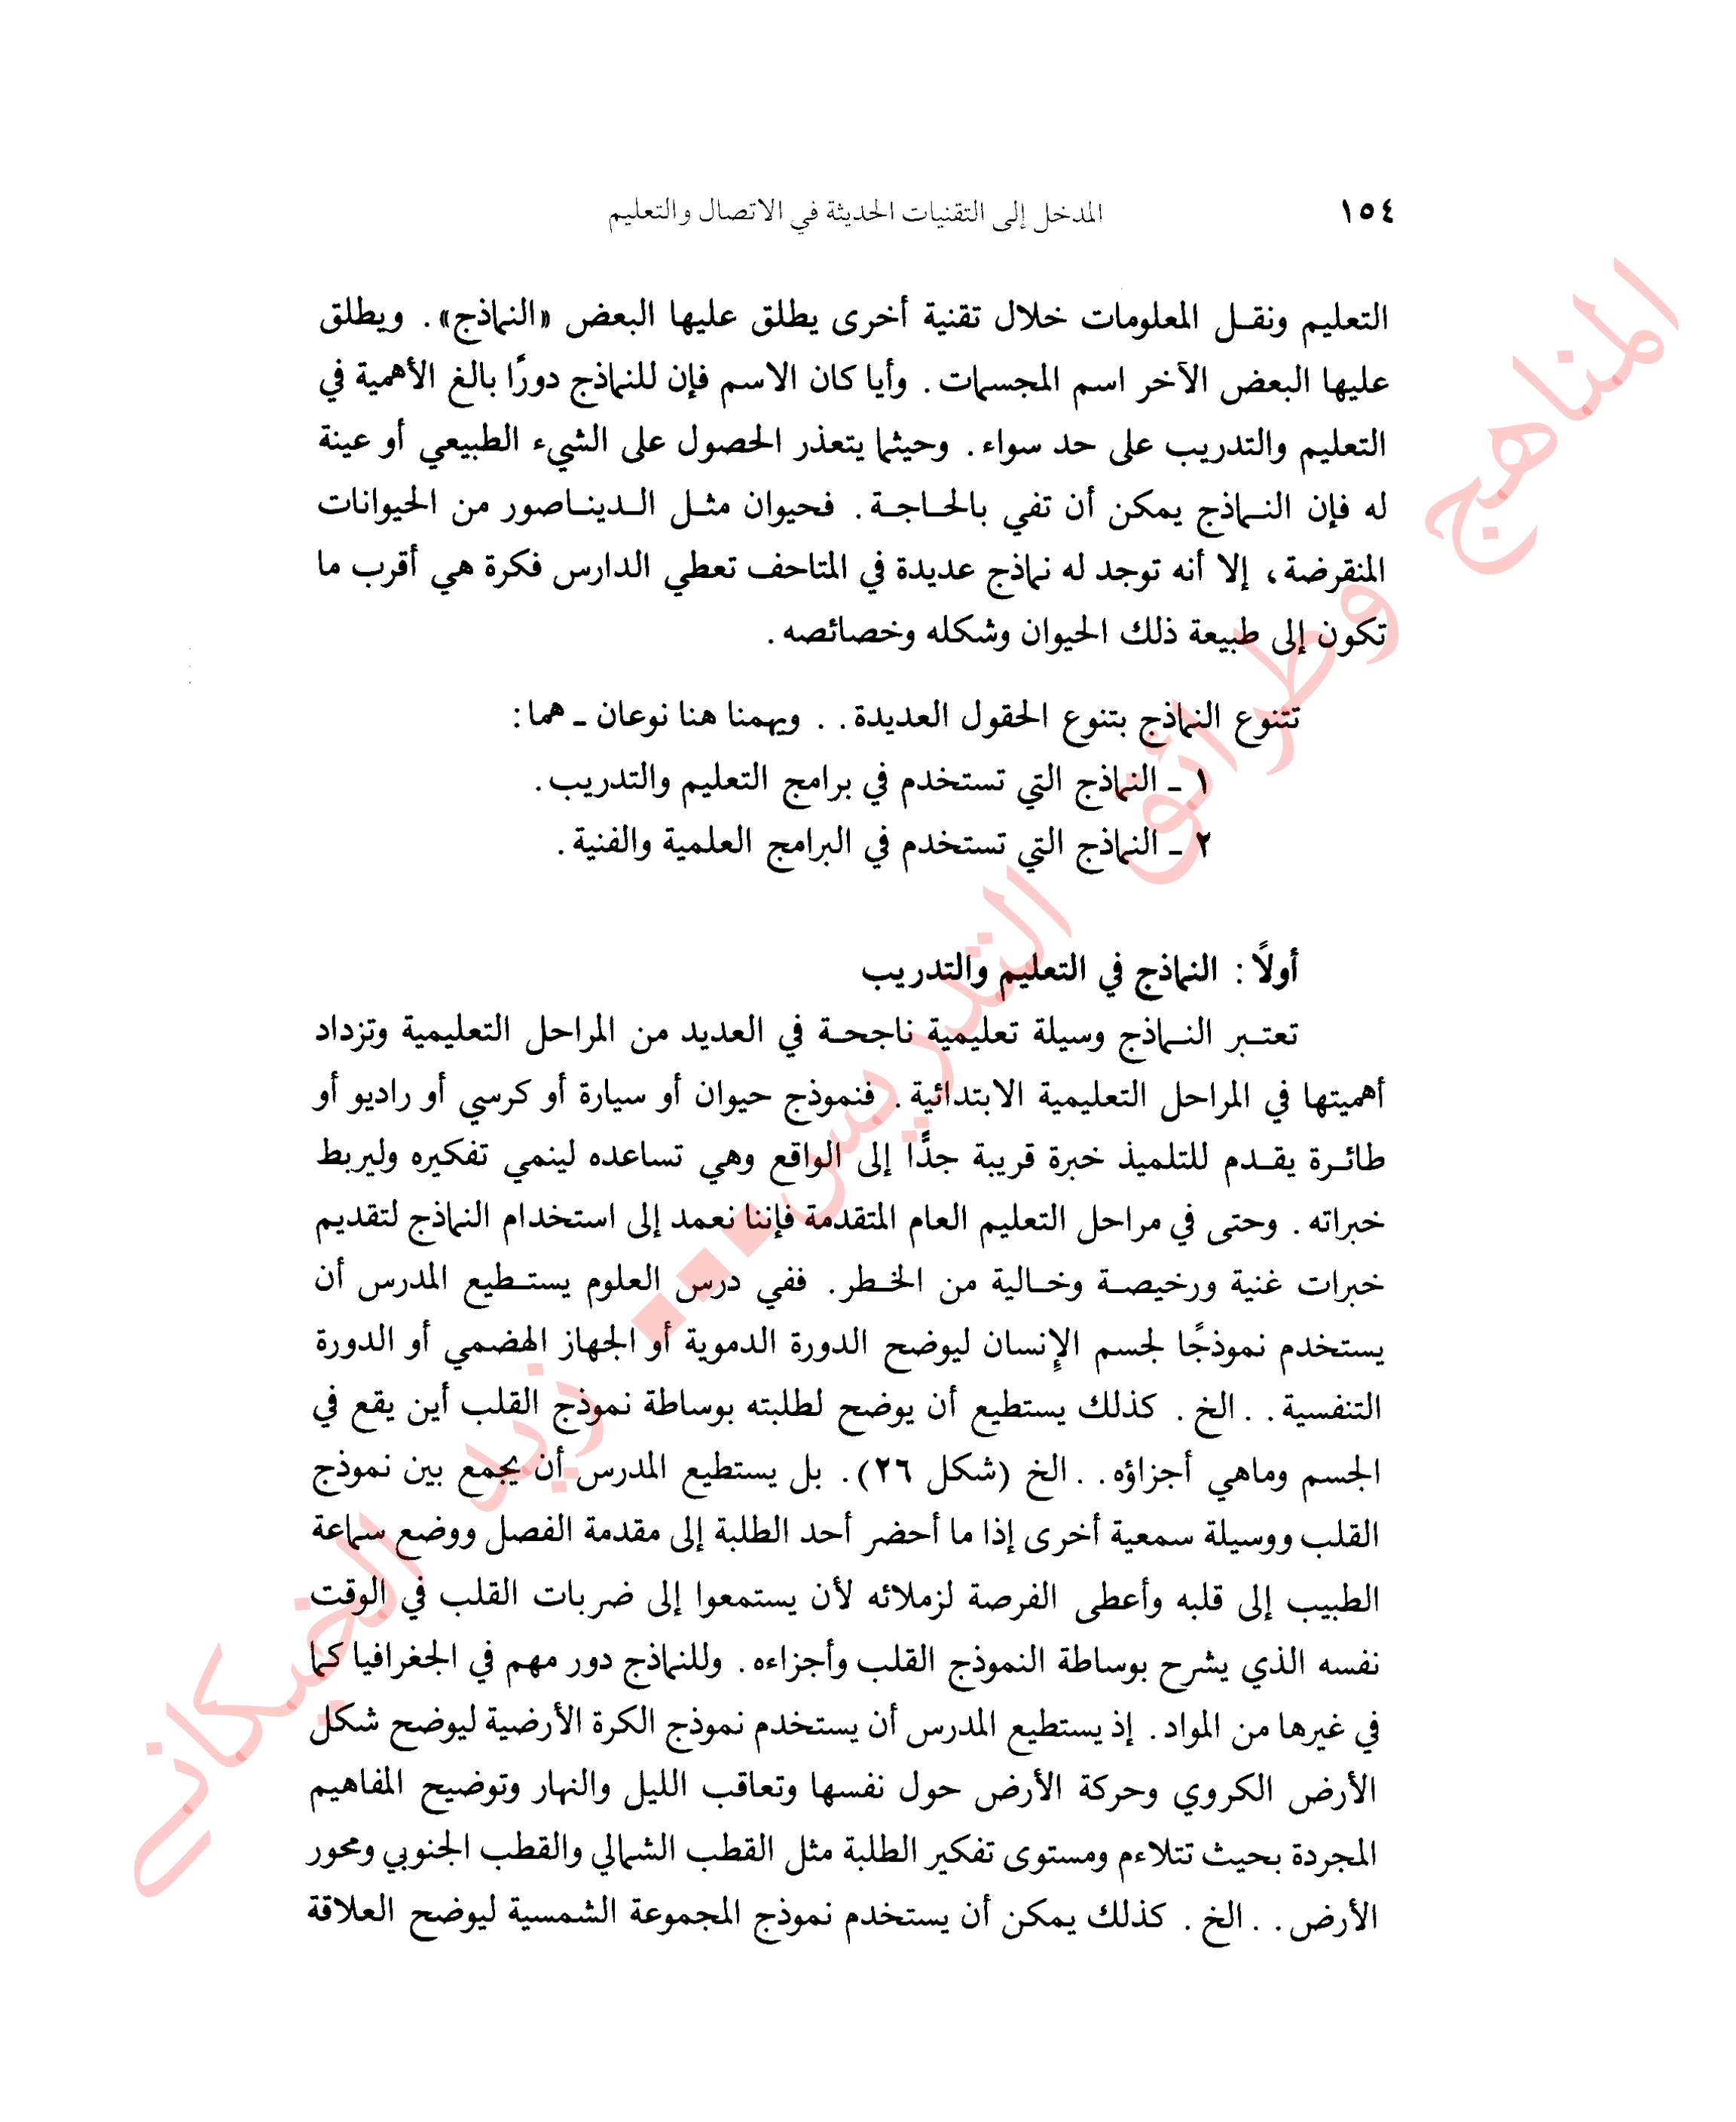 ١٥٤
المدخل إلى التقنيات الحديثة في الاتصال والتعليم
التعليم ونقل المعلومات خلال تقنية أخرى يطلق عليها البعض «النماذج». ويطلق
عليها البعض الآخر اسم المجسمات. وأيا كان الاسم فإن للنماذج دورًا بالغ الأهمية في
التعليم والتدريب على حد سواء. وحيثما يتعذر الحصول على الشيء الطبيعي أو عينة
له فإن النماذج يمكن أن تفي بالحاجة. فحيوان مثل الديناصور من الحيوانات
المنقرضة، إلا أنه توجد له نماذج عديدة في المتاحف تعطي الدارس فكرة هي أقرب ما
تكون إلى طبيعة ذلك الحيوان وشكله وخصائصه.
تتنوع النماذج بتنوع الحقول العديدة. . ويهمنا هنا نوعان ـ هما:
١ ـ النماذج التي تستخدم في برامج التعليم والتدريب.
٢ ـ النماذج التي تستخدم في البرامج العلمية والفنية.
أولاً: النماذج في التعليم والتدريب
تعتبر النماذج وسيلة تعليمية ناجحة في العديد من المراحل التعليمية وتزداد
أهميتها في المراحل التعليمية الابتدائية. فنموذج حيوان أو سيارة أو كرسي أو راديو أو
طائرة يقدم للتلميذ خبرة قريبة جدًّا إلى الواقع وهي تساعده لينمي تفكيره وليربط
خبراته. وحتى في مراحل التعليم العام المتقدمة فإننا نعمد إلى استخدام النماذج لتقديم
خبرات غنية ورخيصة وخالية من الخطر. ففي درس العلوم يستطيع المدرس أن
يستخدم نموذجًا لجسم الإنسان ليوضح الدورة الدموية أو الجهاز الهضمي أو الدورة
التنفسية. . .الخ. كذلك يستطيع أن يوضح لطلبته بوساطة نموذج القلب أين يقع في
الجسم وماهي أجزاؤه. . .الخ (شكل ٢٦). بل يستطيع المدرس أن يجمع بين نموذج
القلب ووسيلة سمعية أخرى إذا ما أحضر أحد الطلبة إلى مقدمة الفصل ووضع سماعة
الطبيب إلى قلبه وأعطى الفرصة لزملائه لأن يستمعوا إلى ضربات القلب في الوقت
نفسه الذي يشرح بوساطة النموذج القلب وأجزاءه. وللنماذج دور مهم في الجغرافيا كما
في غيرها من المواد. إذ يستطيع المدرس أن يستخدم نموذج الكرة الأرضية ليوضح شكل
الأرض الكروي وحركة الأرض حول نفسها وتعاقب الليل والنهار وتوضيح المفاهيم
المجردة بحيث تتلاءم ومستوى تفكير الطلبة مثل القطب الشمالي والقطب الجنوبي ومحور
الأرض. . .الخ. كذلك يمكن أن يستخدم نموذج المجموعة الشمسية ليوضح العلاقة
المناهج وطرائق التدريس... زيد الخيكاني